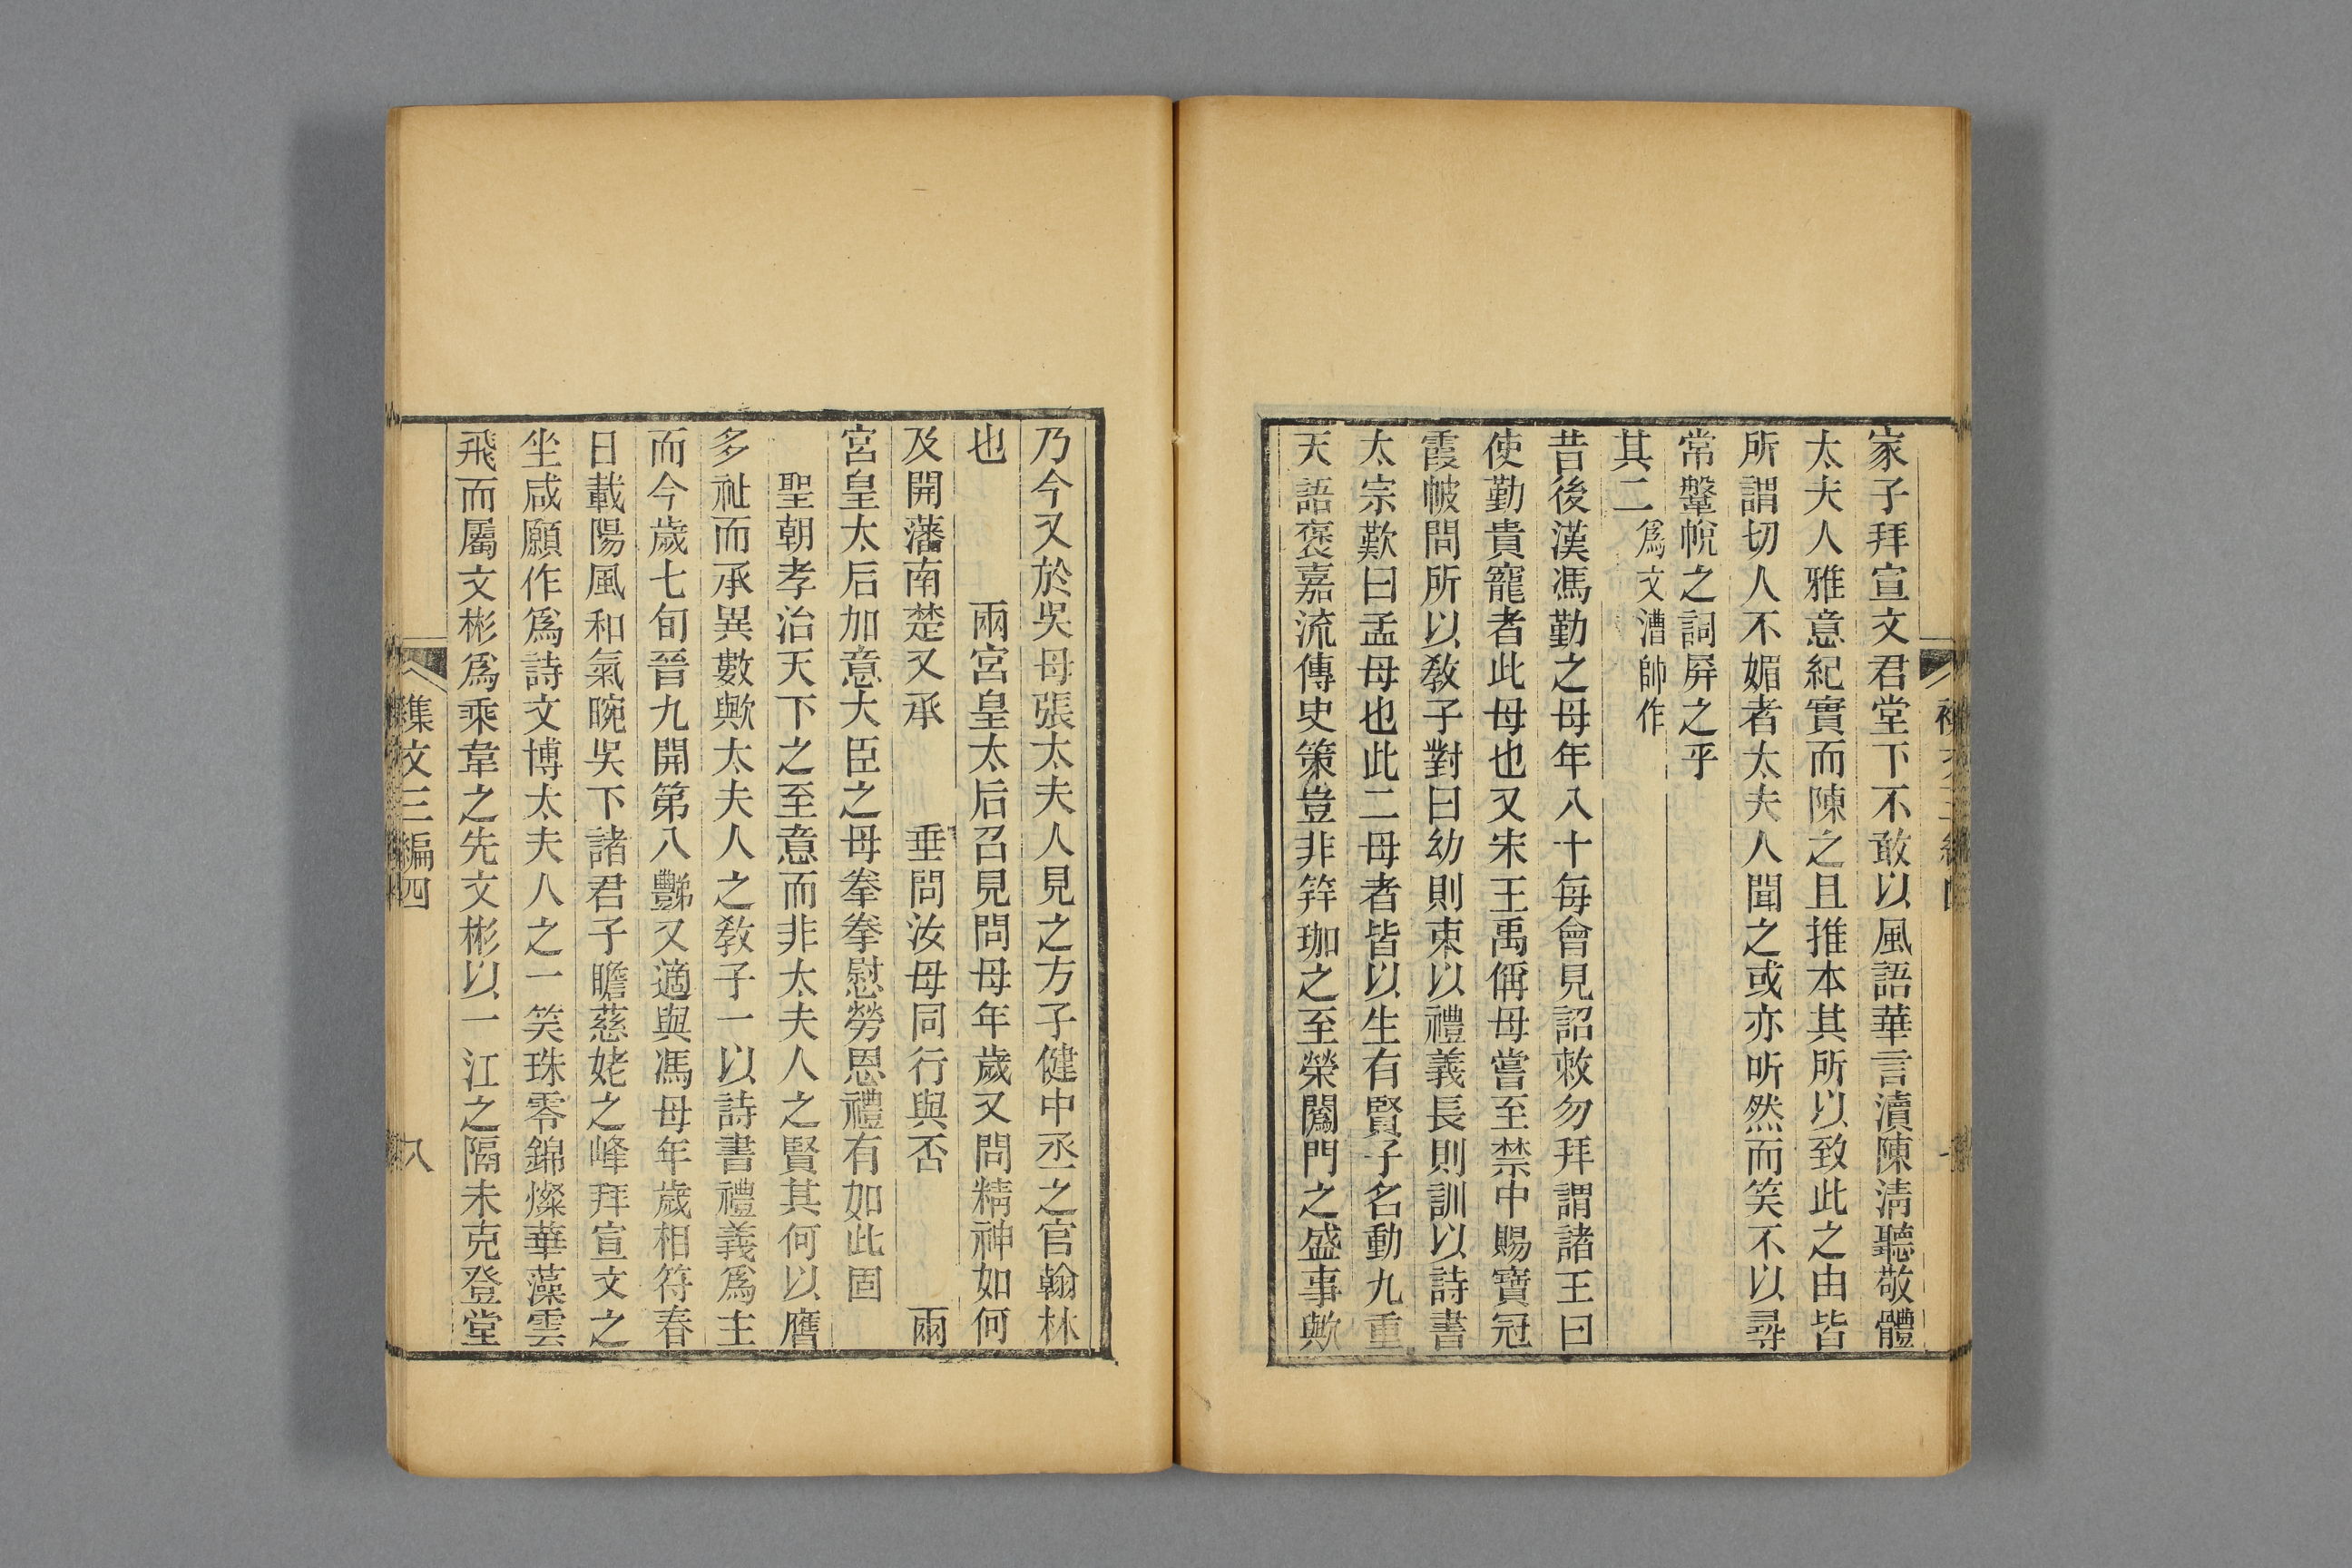 家子拜宣文君堂下不敢以風語華言瀆陳淸聽敬體
太夫人雅意紀實而陳之且推本其所以致此之由皆
所謂切人不媚者太夫人聞之或亦听然而笑不以尋
常鞶帨之詞屏之乎
其二爲文漕帥作
昔後漢馮勤之母年八十每會見詔敕勿拜謂諸王曰
使勤貴寵者此母也又宋王禹偁母嘗至禁中賜寶冠
霞帔問所以敎子對曰幼則束以禮義長則訓以詩書
太宗歎曰孟母也此二母者皆以生有賢子名動九重
天語褒嘉流傳史策豈非笄珈之至榮闈門之盛事歟
乃今又於吳母張太夫人見之方子健中丞之官翰林
也 兩宮皇太后召見問母年歲又問精神如何
及開藩南楚又承 垂問汝母同行與否 兩
宮皇太后加意大臣之母拳拳慰勞恩禮有如此固
聖朝孝治天下之至意而非太夫人之賢其何以膺
多祉而承異數歟太夫人之敎子一以詩書禮義爲主
而今歲七旬晉九開第八豒又適與馮母年歲相符春
日載陽風和氣晼吳下諸君子瞻慈姥之峰拜宣文之
坐咸願作爲詩文博太夫人之一笑珠零錦燦華藻雲
飛而屬文彬爲乘韋之先文彬以一江之隔未克登堂
集文三編四
八